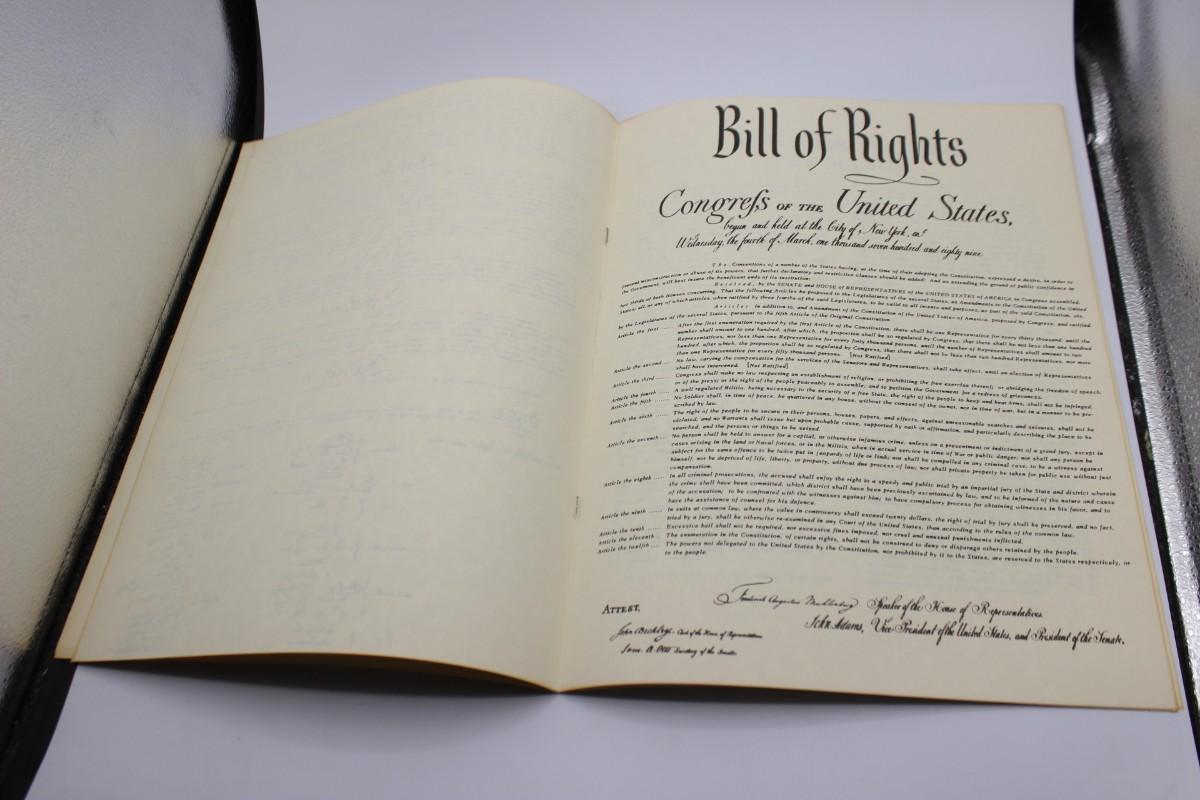 Bill of Rights
Congreſs OF THE United States,
begun and held at the City of New York, on
Wednesday, the fourth of March, one thousand seven hundred and eighty nine.
The Conventions of a number of the States having, at the time of their adopting the Constitution, expressed a desire, in order to
prevent misconstruction or abuse of its powers, that further declaratory and restrictive clauses should be added: And as extending the ground of public confidence in
the Government, will best insure the beneficent ends of its institution:
Resolved, by the SENATE and HOUSE of REPRESENTATIVES of the UNITED STATES of AMERICA in Congress assembled,
two thirds of both Houses concurring. That the following Articles be proposed to the Legislatures of the several States, as Amendments to the Constitution of the United
States; all, or any of which articles, when ratified by three fourths of the said Legislatures, to be valid to all intents and purposes, as part of the said Constitution, viz.
Articles in addition to, and Amendment of the Constitution of the United States of America, proposed by Congress, and ratified
by the Legislatures of the several States, pursuant to the fifth Article of the Original Constitution.
Article the first ...... After the first enumeration required by the first Article of the Constitution, there shall be one Representative for every thirty thousand, until the
number shall amount to one hundred, after which, the proportion shall be so regulated by Congress, that there shall be not less than one hundred
Representatives, nor less than one Representative for every forty thousand persons, until the number of Representatives shall amount to two
hundred, after which, the proportion shall be so regulated by Congress, that there shall not be less than two hundred Representatives, nor more
than one Representative for every fifty thousand persons. [Not Ratified]
Article the second .... No law, varying the compensation for the services of the Senators and Representatives, shall take effect, until an election of Representatives
shall have intervened. [Not Ratified]
Article the third ...... Congress shall make no law respecting an establishment of religion, or prohibiting the free exercise thereof; or abridging the freedom of speech,
or of the press; or the right of the people peaceably to assemble, and to petition the Government for a redress of grievances.
Article the fourth .... A well regulated Militia, being necessary to the security of a free State, the right of the people to keep and bear Arms, shall not be infringed.
Article the fifth ...... No Soldier shall, in time of peace, be quartered in any house, without the consent of the owner, nor in time of war, but in a manner to be pre-
scribed by law.
Article the sixth ...... The right of the people to be secure in their persons, houses, papers, and effects, against unreasonable searches and seizures, shall not be
violated, and no Warrants shall issue but upon probable cause, supported by oath or affirmation, and particularly describing the place to be
searched, and the persons or things to be seized.
Article the seventh ... No person shall be held to answer for a capital, or otherwise infamous crime, unless on a presentment or indictment of a grand jury, except in
cases arising in the land or Naval forces, or in the Militia, when in actual service in time of War or public danger; nor shall any person be
subject for the same offence to be twice put in jeopardy of life or limb; nor shall be compelled in any criminal case, to be a witness against
himself, nor be deprived of life, liberty, or property, without due process of law; nor shall private property be taken for public use without just
compensation.
Article the eighth ..... In all criminal prosecutions, the accused shall enjoy the right to a speedy and public trial by an impartial jury of the State and district wherein
the crime shall have been committed, which district shall have been previously ascertained by law, and to be informed of the nature and cause
of the accusation; to be confronted with the witnesses against him; to have compulsory process for obtaining witnesses in his favor, and to
have the assistance of counsel for his defence.
Article the ninth ...... In suits at common law, where the value in controversy shall exceed twenty dollars, the right of trial by jury shall be preserved, and no fact,
tried by a jury, shall be otherwise re-examined in any Court of the United States, than according to the rules of the common law.
Article the tenth ...... Excessive bail shall not be required, nor excessive fines imposed, nor cruel and unusual punishments inflicted.
Article the eleventh .. The enumeration in the Constitution, of certain rights, shall not be construed to deny or disparage others retained by the people.
Article the twelfth .... The powers not delegated to the United States by the Constitution, nor prohibited by it to the States, are reserved to the States respectively, or
to the people.
Frederick Augustus Muhlenberg Speaker of the House of Representatives.
ATTEST,
John Adams, Vice-President of the United States, and President of the Senate.
John Beckley, Clerk of the House of Representatives
Sam. A. Otis Secretary of the Senate